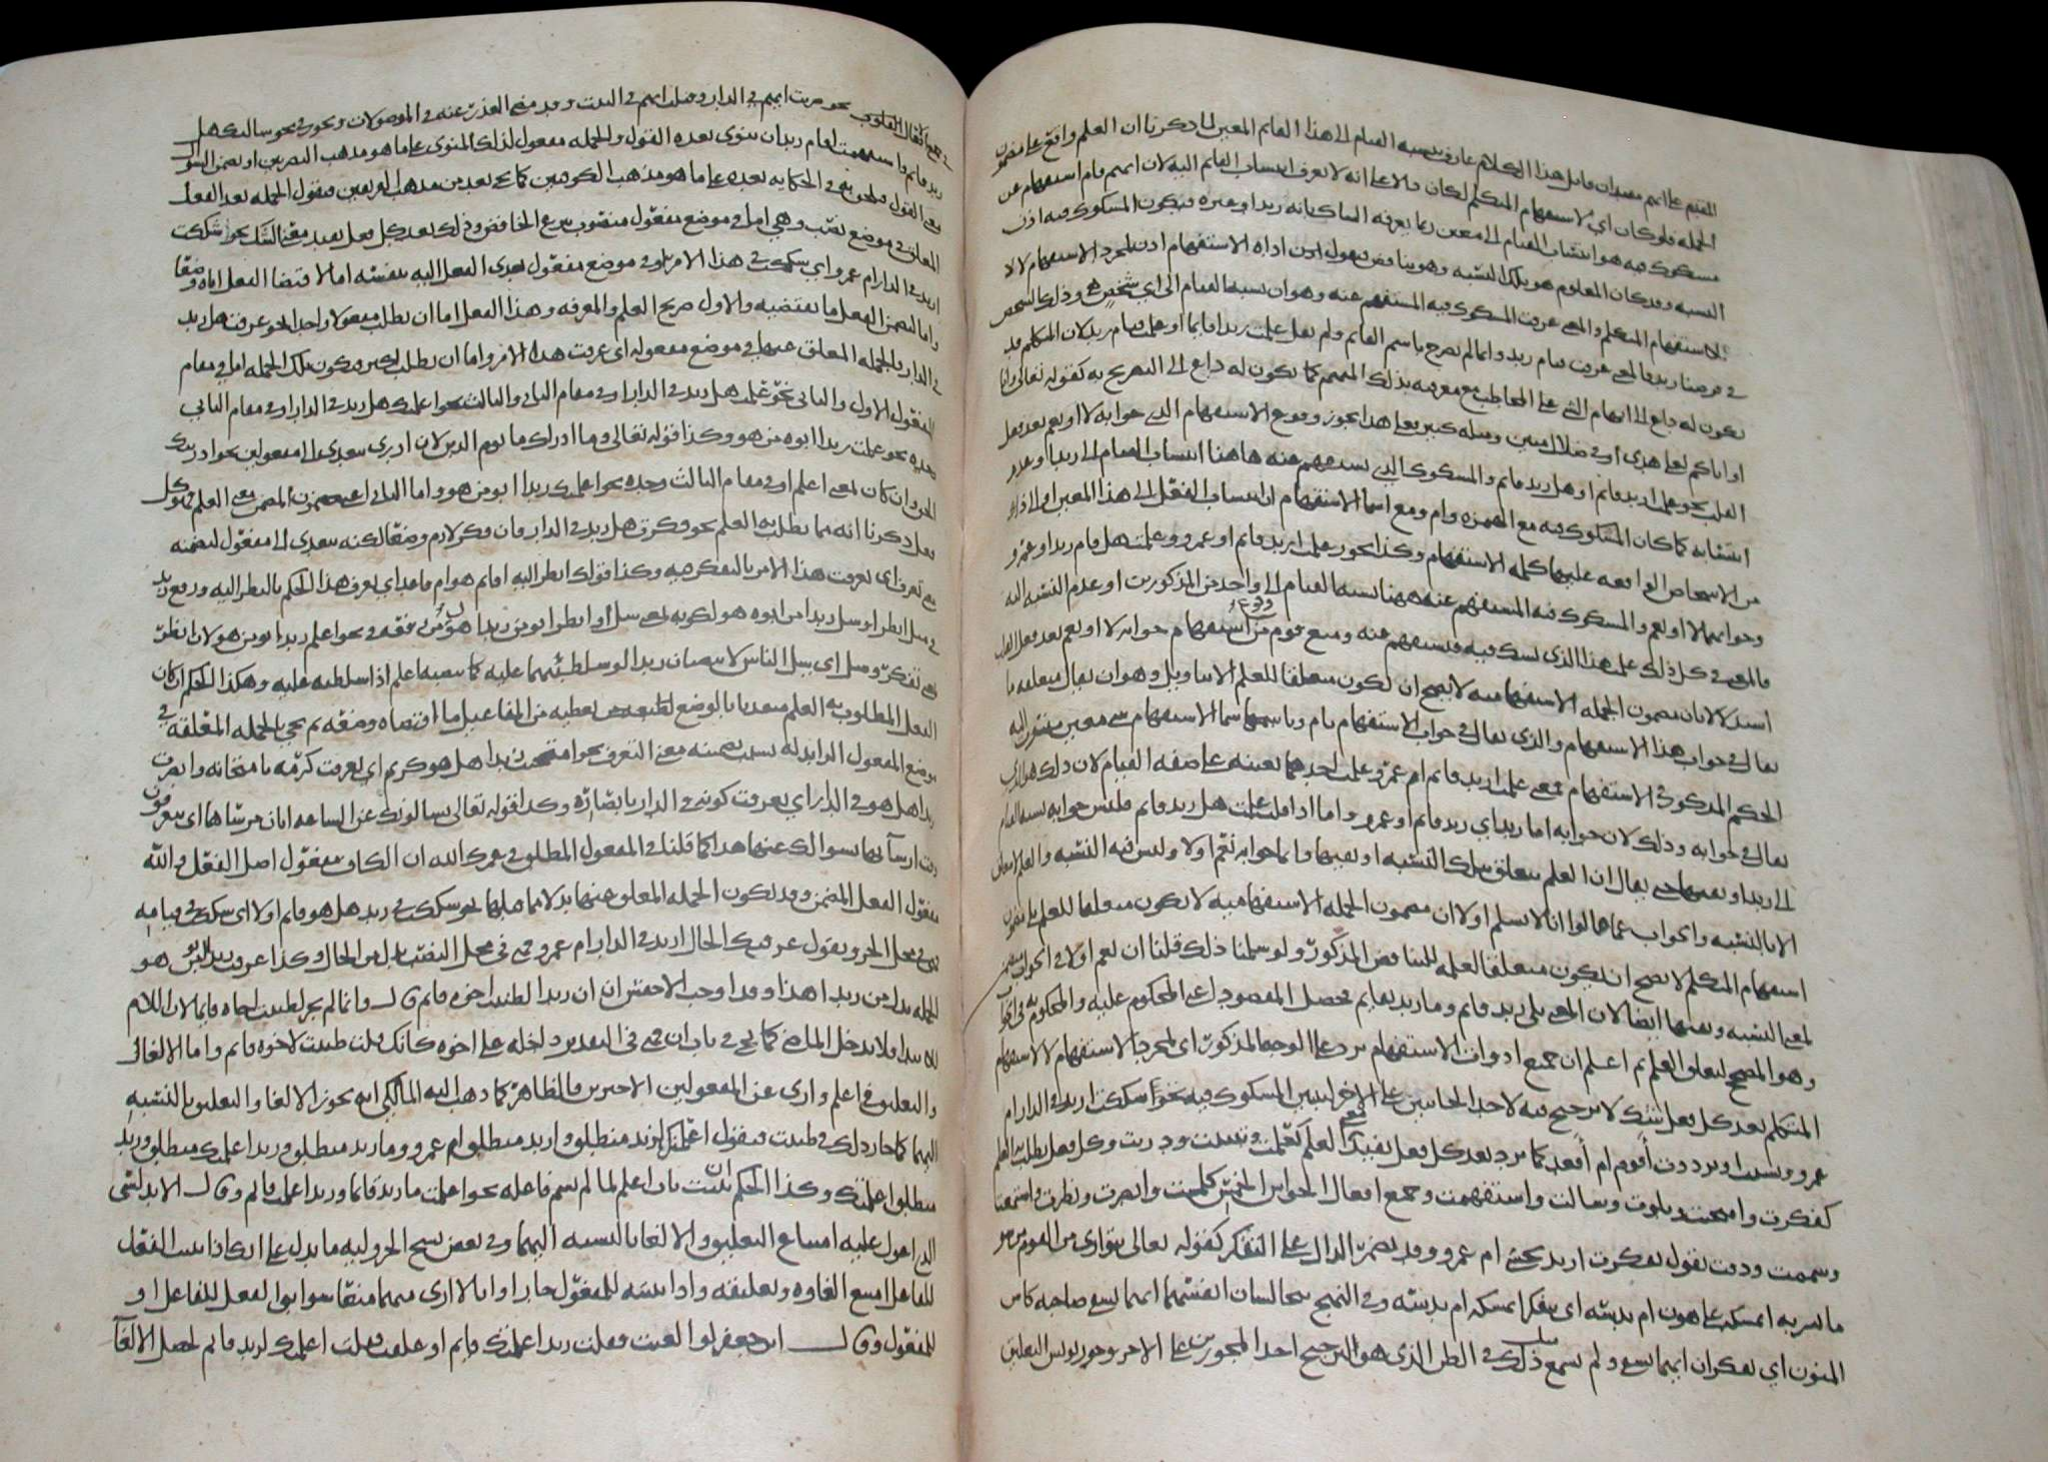 المقيم على انهم مفيدان قايل هذا الكلام عارف بنسبة القيام الى هذا القايم المعين لما ذكرنا ان العلم واقع على مضمون
الجملة فلو كان اي لاستفهام المتكلم لكان دالا على انه لا يعرف انتساب القايم اليه لان ايهم قام استفهام عن
مشكوك فيه هو انتساب القيام الى معين ربما يعرفه الشاك بانه زيد او غيره فيكون المشكوك فيه اذن
النسبة وقد كان المعلوم هو تلك النسبة وهو تناقض فنقول اذن اداة الاستفهام اذن لمجرد الاستفهام لا لا
لاستفهام المتكلم والمعنى عرفت المشكوك فيه المستفهم عنه وهو ان نسبة القيام الى اي شخص هي وذلك الشخص
في فرضنا زيد فالمعنى عرفت قيام زيد وانما لم يصرح باسم القايم ولم يقل علمت زيدا قايما او علمت قيام زيد لان المتكلم قد
يكون له داع الى ابهام الشي على المخاطب مع معرفته بذلك المبهم كما يكون له داع الى التصريح به كقوله تعالى وانا
او اياكم لعلى هدى او في ضلال مبين ومثله كثير فعلى هذا يجوز وقوع الاستفهام الذي جوابه لا او نعم بعد فعل
القلب نحو علمت ازيد قايم او هل زيد قايم والمشكوك الذي يستفهم عنه هاهنا انتساب القيام الى زيد او عدم
انتسابه كما كان المشكوك فيه مع الهمزة وام ومع اسما الاستفهام ان انتساب الفعل الى هذا المعين او الى ذاك
من الاشخاص الواقعة عليها كلمة الاستفهام وكذا يجوز علمت ازيد قايم او عمرو وعلمت هل قام زيد او عمرو
وجوابهما لا او نعم والمشكوك فيه المستفهم عنه ههنا نسبة القيام الى واحد من المذكورين او عدم النسبة اليه
فالمعنى في كل ذلك علمت هذا الذي يشك فيه فيستفهم عنه ومنع قوم من وقوع استفهام جوابه لا او نعم بعد فعل القلب
استدلالا بان مضمون الجملة الاستفهامية لا يصح ان يكون متعلقا للعلم الا بتاويل وهو ان يقال متعلقه ما
يقال في جواب هذا الاستفهام والذي يقال في جواب الاستفهام بام وباسما الاستفهام شي معين منسوب اليه
الحكم المذكور في الاستفهام فمعنى علمت ازيد قايم ام عمرو علمت احدهما بعينه على صفة القيام لان ذلك هو الذي
يقال في جوابه وذلك لان جوابه اما زيد اي زيد قايم او عمرو واما اذا قلت علمت هل زيد قايم فليس جوابه نسبة القيام
الى زيد او نفيها حتى يقال ان العلم متعلق بتلك النسبة او نفيها وانما جوابه نعم او لا وليس فيه النسبة والعلم لا يتعلق
الا بالنسبة والجواب عما قالوا انا لا نسلم اولا ان مضمون الجملة الاستفهامية لا يكون متعلقا للعلم بل نقول
استفهام المتكلم لا يصح ان يكون متعلقا لعلمه للتناقض المذكور ولو سلمنا ذلك قلنا ان نعم او لا في الجواب متضمن
لمعنى النسبة ونفيها ايضا لان المعنى بلى زيد قايم وما زيد بقايم فحصل المقصود اعني المحكوم عليه والمحكوم به في الجواب
وهو المصحح لتعلق العلم ثم اعلم ان جميع ادوات الاستفهام ترد على الوجه المذكور اي لمجرد الاستفهام لا لاستفهام
المتكلم بعد كل فعل شك لا ترجيح فيه لاحد الجانبين على الاخر ليتبين المشكوك فيه نحو شككت ازيد في الدار ام
عمرو ونسيت او ترددت أقوم ام أقعد كما ترد بعد كل فعل يفيد معنى العلم كعلمت وتبينت ودريت وكل فعل يطلب به العلم
كفكرت وامتحنت وبلوت وسالت واستفهمت وجميع افعال الحواس الخمس كلمست وابصرت ونظرت واستمعت
وشممت وذقت تقول تفكرت ازيد يجي ام عمرو وقد يضمر الدال على التفكر كقوله تعالى يتوارى من القوم من سو
ما بشر به ايمسكه على هون ام يدسه اي متفكرا ايمسكه ام يدسه وفي النهج يتخالسان انفسهما ايهما يسقي صاحبه كاس
المنون اي يتفكران ايهما يسقي ولم يسمع مثل ذلك في الظن الذي هو الترجيح احد المجوزين على الاخر وجوز يونس التعليق
في جميع الافعال القلوب نحو ضربت ايهم في الدار وقتلت ايهم في البيت وقد مضى العذر عنه في الموصولات ونحو في نحو سالتك هل
زيد قايم واستفهمت اقام زيد ان ينوى بعده القول والجملة مفعول لذلك المنوي على ما هو مذهب البصريين او يضمن السؤال
معنى القول فيلحق به في الحكاية بعده على ما هو مذهب الكوفيين كما يجي بعد من مذهب الفريقين فنقول الجملة بعد الفعل
المعلق في موضع نصب وهي اما في موضع مفعول منصوب بنزع الخافض وذلك بعد كل فعل يفيد معنى الشك نحو شككت
ازيد في الدار ام عمرو اي شككت في هذا الامر او في موضع مفعول تعدى الفعل اليه بنفسه اما لاقتضا الفعل اياه وضعا
واما لتضمن الفعل ما يقتضيه والاول صريح العلم والمعرفة وهذا الفعل اما ان يطلب مفعولا واحدا نحو عرفت هل زيد
في الدار فالجملة المعلق عنها في موضع مفعوله اي عرفت هذا الامر واما ان يطلب اكثر فتكون تلك الجملة اما في مقام
المفعول الاول والثاني نحو علمت هل زيد في الدار او في مقام الثاني والثالث نحو اعلمتك هل زيد في الدار او في مقام الثاني
وحده نحو علمت زيدا ابوه من هو وكذا قوله تعالى وما ادراك ما يوم الدين لان ادرى يتعدى الى مفعولين نحو ادريتك
الحق وان كان بمعنى اعلم او في مقام الثالث وحده نحو اعلمتك زيدا ابو من هو واما الثاني اعني متضمن المضمن معنى العلم فهو كل
فعل ذكرنا انه مما يطلب به العلم نحو فكرت هل زيد في الدار فان فكر لازم وضعا لكنه يتعدى الى مفعول لتضمنه
معنى تعرف اي تعرفت هذا الامر بالتفكر فيه وكذا قولك انظر اليه اقايم هو ام قاعد اي تعرف هذا الحكم بالنظر اليه ورفع زيد
في مثل انظر او سل زيد ابو من هو لكونه بمعنى سل او انظر ابو من زيد اهون من رفعه في نحو اعلم زيد ابو من هو لان انظر
بمعنى تفكر وسل اي سل الناس لا ينصبان زيدا لو سلطتهما عليه كما ينصبه اعلم اذا سلطته عليه وهكذا الحكم ان كان
الفعل المطلوب به العلم متعديا بالوضع تعطيه من المفاعيل ما اقتضاه وضعه ثم تجي بالجملة المعلقة في
موضع المفعول الزايد له بسبب تضمنه معنى التعرف نحو امتحنت زيدا هل هو كريم اي تعرفت كرمه بامتحانه وابصرت
زيدا هل هو في الدار اي تعرفت كونه في الدار بابصاره وكذا قوله تعالى يسالونك عن الساعة ايان مرساها اي يتعرفون
وقت ارسائها بسوالك عنها هذا كما قلنا في المفعول المطلق في عمرك الله ان الكاف مفعول اصل الفعل والله
مفعول الفعل المضمن وقد تكون الجملة المعلق عنها بدلا مما قبلها نحو شككت في زيد هل هو قايم او لا اي شككت في قيامه
فهي في محل الجر وتقول عرفتك الحال ازيد في الدار ام عمرو فهي في محل النصب بدل من الحال وكذا عرفت زيدا ابو من هو
الجملة بدل من زيدا هذا وقد اوجب الاخفش ان ان زيدا لظننت اخوه قايم قال وانما لم يجز لظننت اخاه قايما لان اللام
لام ابتدا ولا تدخل الماضي كما يجي في باب ان فهي في التقدير داخلة على اخوه كانك قلت ظننت لاخوه قايم واما الالغا
والتعليق في اعلم وارى عن المفعولين الاخيرين فالظاهر كما ذهب اليه المالكي انه يجوز الالغا والتعليق بالنسبة
اليهما كما جاز ذلك في ظننت فتقول اعلمتك لزيد منطلق وازيد منطلق ام عمرو وما زيد منطلق وزيد اعلمتك منطلق وزيد
منطلق اعلمتك وكذا الحكم ان بنيت باب اعلم لما لم يسم فاعله نحو اعلمت ما زيد قايما وزيد اعلمت قايم وقال الاندلسي
الذي اعول عليه امتناع التعليق والالغا بالنسبة اليهما وفي بعض نسخ الجزولية ما يدل على انك اذا بنيت الفعل
للفاعل امتنع الغاوه وتعليقه واذا بنيته للمفعول جازا وانا لا ارى منهما منعا سوا بني الفعل للفاعل او
للمفعول وقال ابن جعفر لو الغيت فقلت زيد اعلمتك قايم او علقت فقلت اعلمتك لزيد قايم لحصل الالغا